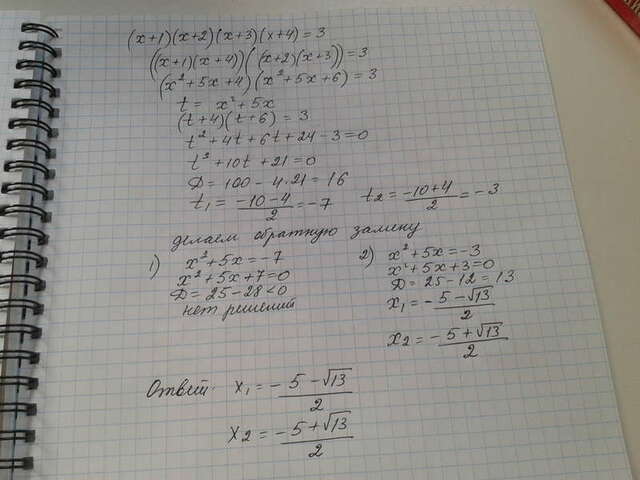 (x+1)(x+2)(x+3)(x+4)=3
((x+1)(x+4))((x+2)(x+3))=3
(x²+5x+4)(x²+5x+6)=3
t = x²+5x
(t+4)(t+6)=3
t²+4t+6t+24-3=0
t²+10t+21=0
D=100-4·21=16
t₁= (-10-4)/2 = -7 t₂= (-10+4)/2 = -3
делаем обратную замену
1) x²+5x=-7
x²+5x+7=0
D=25-28<0
нет решений
2) x²+5x=-3
x²+5x+3=0
D=25-12=13
x₁= (-5-√13)/2
x₂= (-5+√13)/2
Ответ: x₁= (-5-√13)/2
x₂= (-5+√13)/2